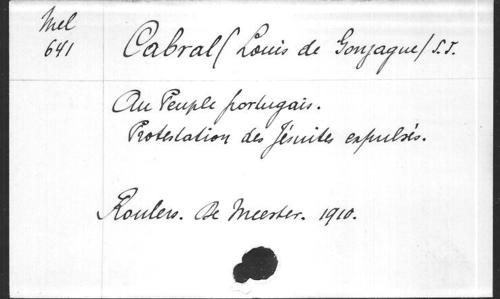 Mel
641
Cabral (Louis de Gonzague) S.J.
Au Peuple portugais.
Protestation des Jésuites expulsés.
Roulers. De Meester. 1910.